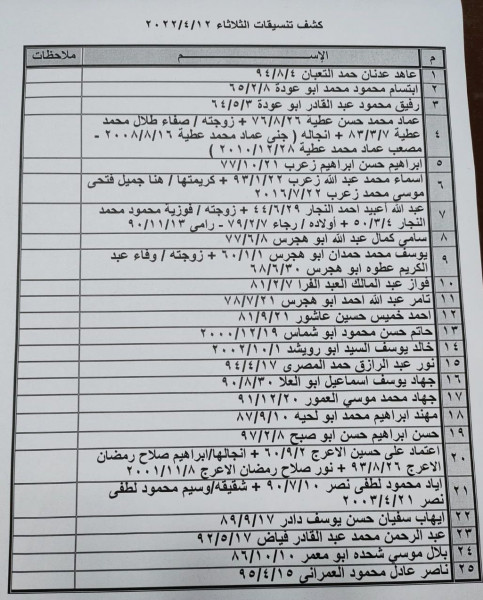 كشف تنسيقات الثلاثاء ٢٠٢٢/٤/١٢
م الإســـــــــم ملاحظات
١ عاهد عدنان حمد التعبان ٩٤/٨/٤
٢ ابتسام محمود محمد ابو عودة ٦٥/٢/٨
٣ رفيق محمود عبد القادر ابو عودة ٦٤/٥/٣
٤ عماد محمد حسن عطيه ٧٦/٨/٢٦ + زوجته / صفاء طلال محمد
عطية ٨٣/٣/٧ + انجاله ( جنى عماد محمد عطية ٢٠٠٨/٨/١٦ -
مصعب عماد محمد عطية ٢٠١٠/١٢/٢٨ )
٥ ابراهيم حسن ابراهيم زعرب ٧٧/١٠/٢١
٦ اسماء محمد عبد الله زعرب ٩٣/١/٢٢ + كريمتها / هنا جميل فتحى
موسي محمد زعرب ٢٠١٦/٧/٢٢
٧ عبد الله أعبيد احمد النجار ٤٤/٦/٢٩ + زوجته / فوزية محمود محمد
النجار ٥٠/٣/٤ + أولاده / رجاء ٧٩/٢/٧ - رامى ٩٠/١١/١٣
٨ سامي كمال عبد الله ابو هجرس ٧٧/٦/٨
٩ يوسف محمد حمدان ابو هجرس ٦٠/١/١ + زوجته / وفاء عبد
الكريم عطوه ابو هجرس ٦٨/٦/٣٠
١٠ فواز عبد المالك العبد الفرا ٨١/٢/٧
١١ تامر عبد الله احمد ابو هجرس ٧٨/٧/٢١
١٢ احمد خميس حسين عاشور ٨١/٩/٢١
١٣ حاتم حسن محمود ابو شماس ٢٠٠٠/١٢/١٩
١٤ خالد يوسف السيد ابو رويشد ٢٠٠٢/١٠/١
١٥ نور عبد الرازق حمد المصرى ٩٤/٤/١٧
١٦ جهاد يوسف اسماعيل ابو العلا ٩٠/٨/٣٠
١٧ جهاد محمد موسي العمور ٩١/١٢/٢٠
١٨ مهند ابراهيم محمد ابو لحيه ٨٧/٩/١٠
١٩ حسن ابراهيم حسن ابو صبح ٩٧/٢/٨
٢٠ اعتماد على حسين الاعرج ٦٠/٩/٢ + انجالها/ابراهيم صلاح رمضان
الاعرج ٩٣/٨/٢٦ + نور صلاح رمضان الاعرج ٢٠٠١/١١/٨
٢١ اياد محمود لطفى نصر ٩٠/٧/١٠ + شقيقه/وسيم محمود لطفى
نصر ٢٠٠٣/٤/٢١
٢٢ ايهاب سفيان حسن يوسف دادر ٨٩/٩/١٧
٢٣ عبد الرحمن محمد عبد القادر فياض ٩٢/٥/١٧
٢٤ بلال موسي شحده ابو معمر ٨٦/١٠/١٠
٢٥ ناصر عادل محمود العمراني ٩٥/٤/١٥